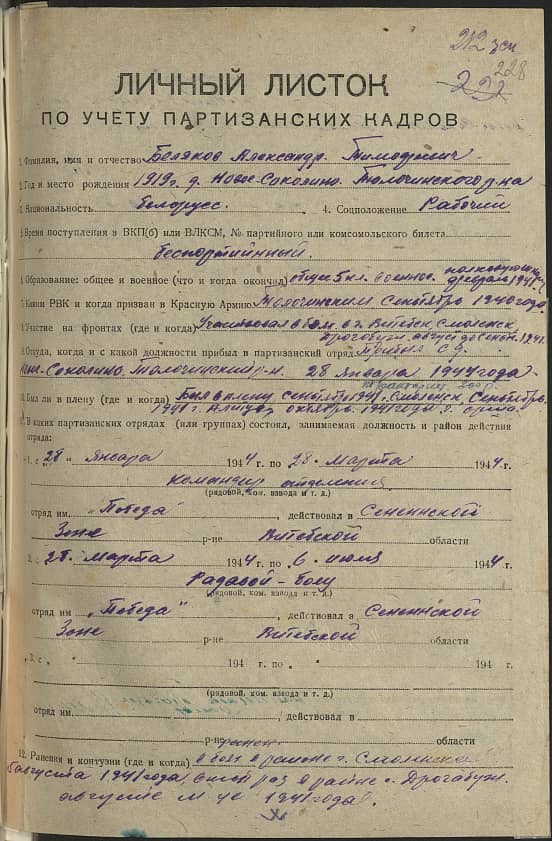 212
228
ЛИЧНЫЙ ЛИСТОК
ПО УЧЕТУ ПАРТИЗАНСКИХ КАДРОВ
1. Фамилия, имя и отчество Беляков Александр Тимофеевич
2. Год и место рождения 1919г. д. Ново-Соколино. Толочинского р-на
3. Национальность белорусс. 4. Соцположение Рабочий
5. Время поступления в ВКП(б) или ВЛКСМ, № партийного или комсомольского билета
беспортийный.
6. Образование: общее и военное (что и когда окончил) общее 5 кл. военное.
7. Каким РВК и когда призван в Красную Армию Толочинским Сентябрь 1940 года
8. Участие на фронтах (где и когда) Участвовал в боях в г. Витебск, Смоленск,
9. Откуда, когда и с какой должности прибыл в партизанский отряд Прибыл с д.
Ново-Соколино Толочинский р-н. 28 Января 1944 года
10. Был ли в плену (где и когда) Был в плену сентябрь 1941 г. Смоленск Сентябрь
1941 г. октябрь 1941 года г. Орша.
11. В каких партизанских отрядах (или группах) состоял, занимаемая должность и район действия
отряда:
1. с 28 " Января 1944 г. по 28 . Марта 1944 г.
командир отделения
(рядовой, ком. взвода и т. д.)
отряд им „Победа" , действовал в Сененнской
Зоне р-не Витебской области
2. с 28 " Марта 1944 г. по 6 . июля 1944 г.
Радавой - боец
(рядовой, ком. взвода и т. д.)
отряд им „Победа" , действовал в Сененнской
Зоне р-не Витебской области
„3. с " 194 г. по " 194 г.
(рядовой, ком. взвода и т. д.)
отряд им. , действовал в
р-не области
12. Ранения и контузии (где и когда) в боях в районе г. Смоленска
августа 1941 года, раз в районе г. Дрогабуж.
августе м-це 1941 года.